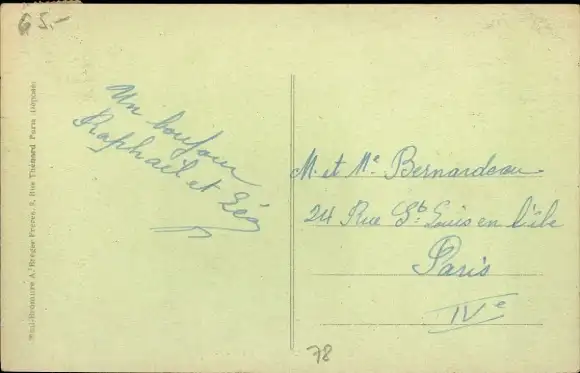 65.-
Un bonjour
Raphaël et Léa
M. et Me Bernardeau
24 Rue St Louis en l'île
Paris
IVe
78
A. Breger Frères, 9, Rue Thénard Paris Déposé